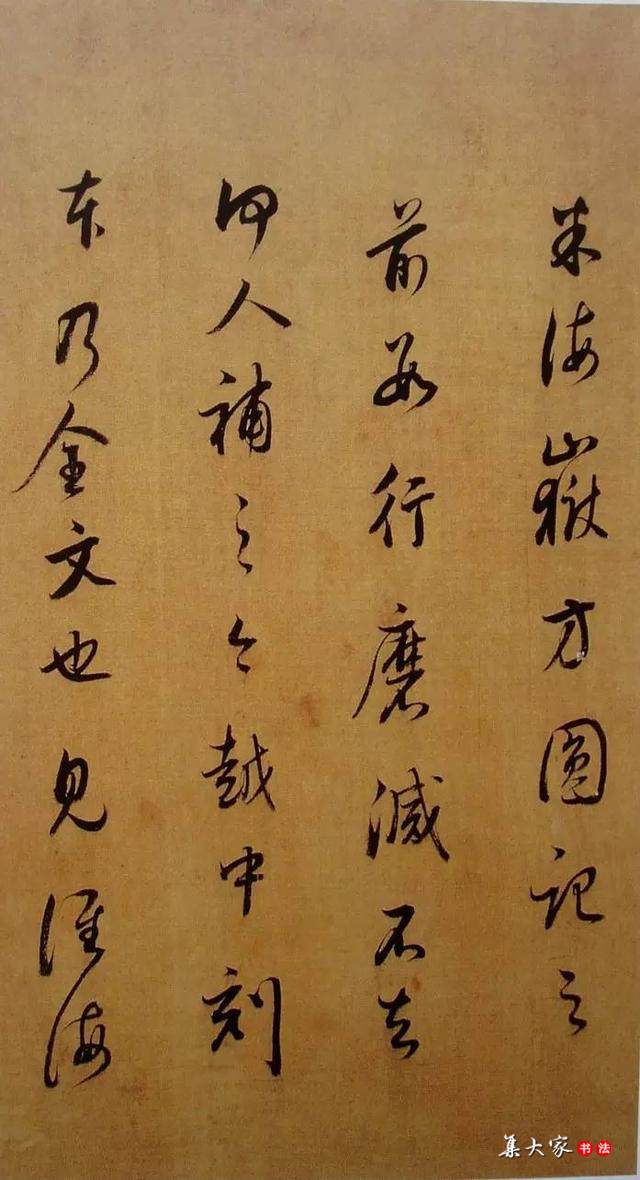 米海嶽方圓記之
前數行磨滅不知
何人補之今越中刻
本乃全文也見淮海
集大家书法